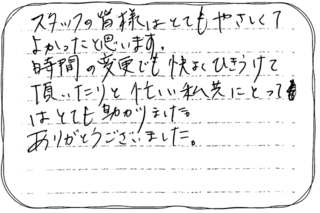 スタッフの皆様はとてもやさしくて
よかったと思います。
時間の変更でも快よくひきうけて
頂いたりと忙しい私共にとって
はとても助かりました。
ありがとうございました。